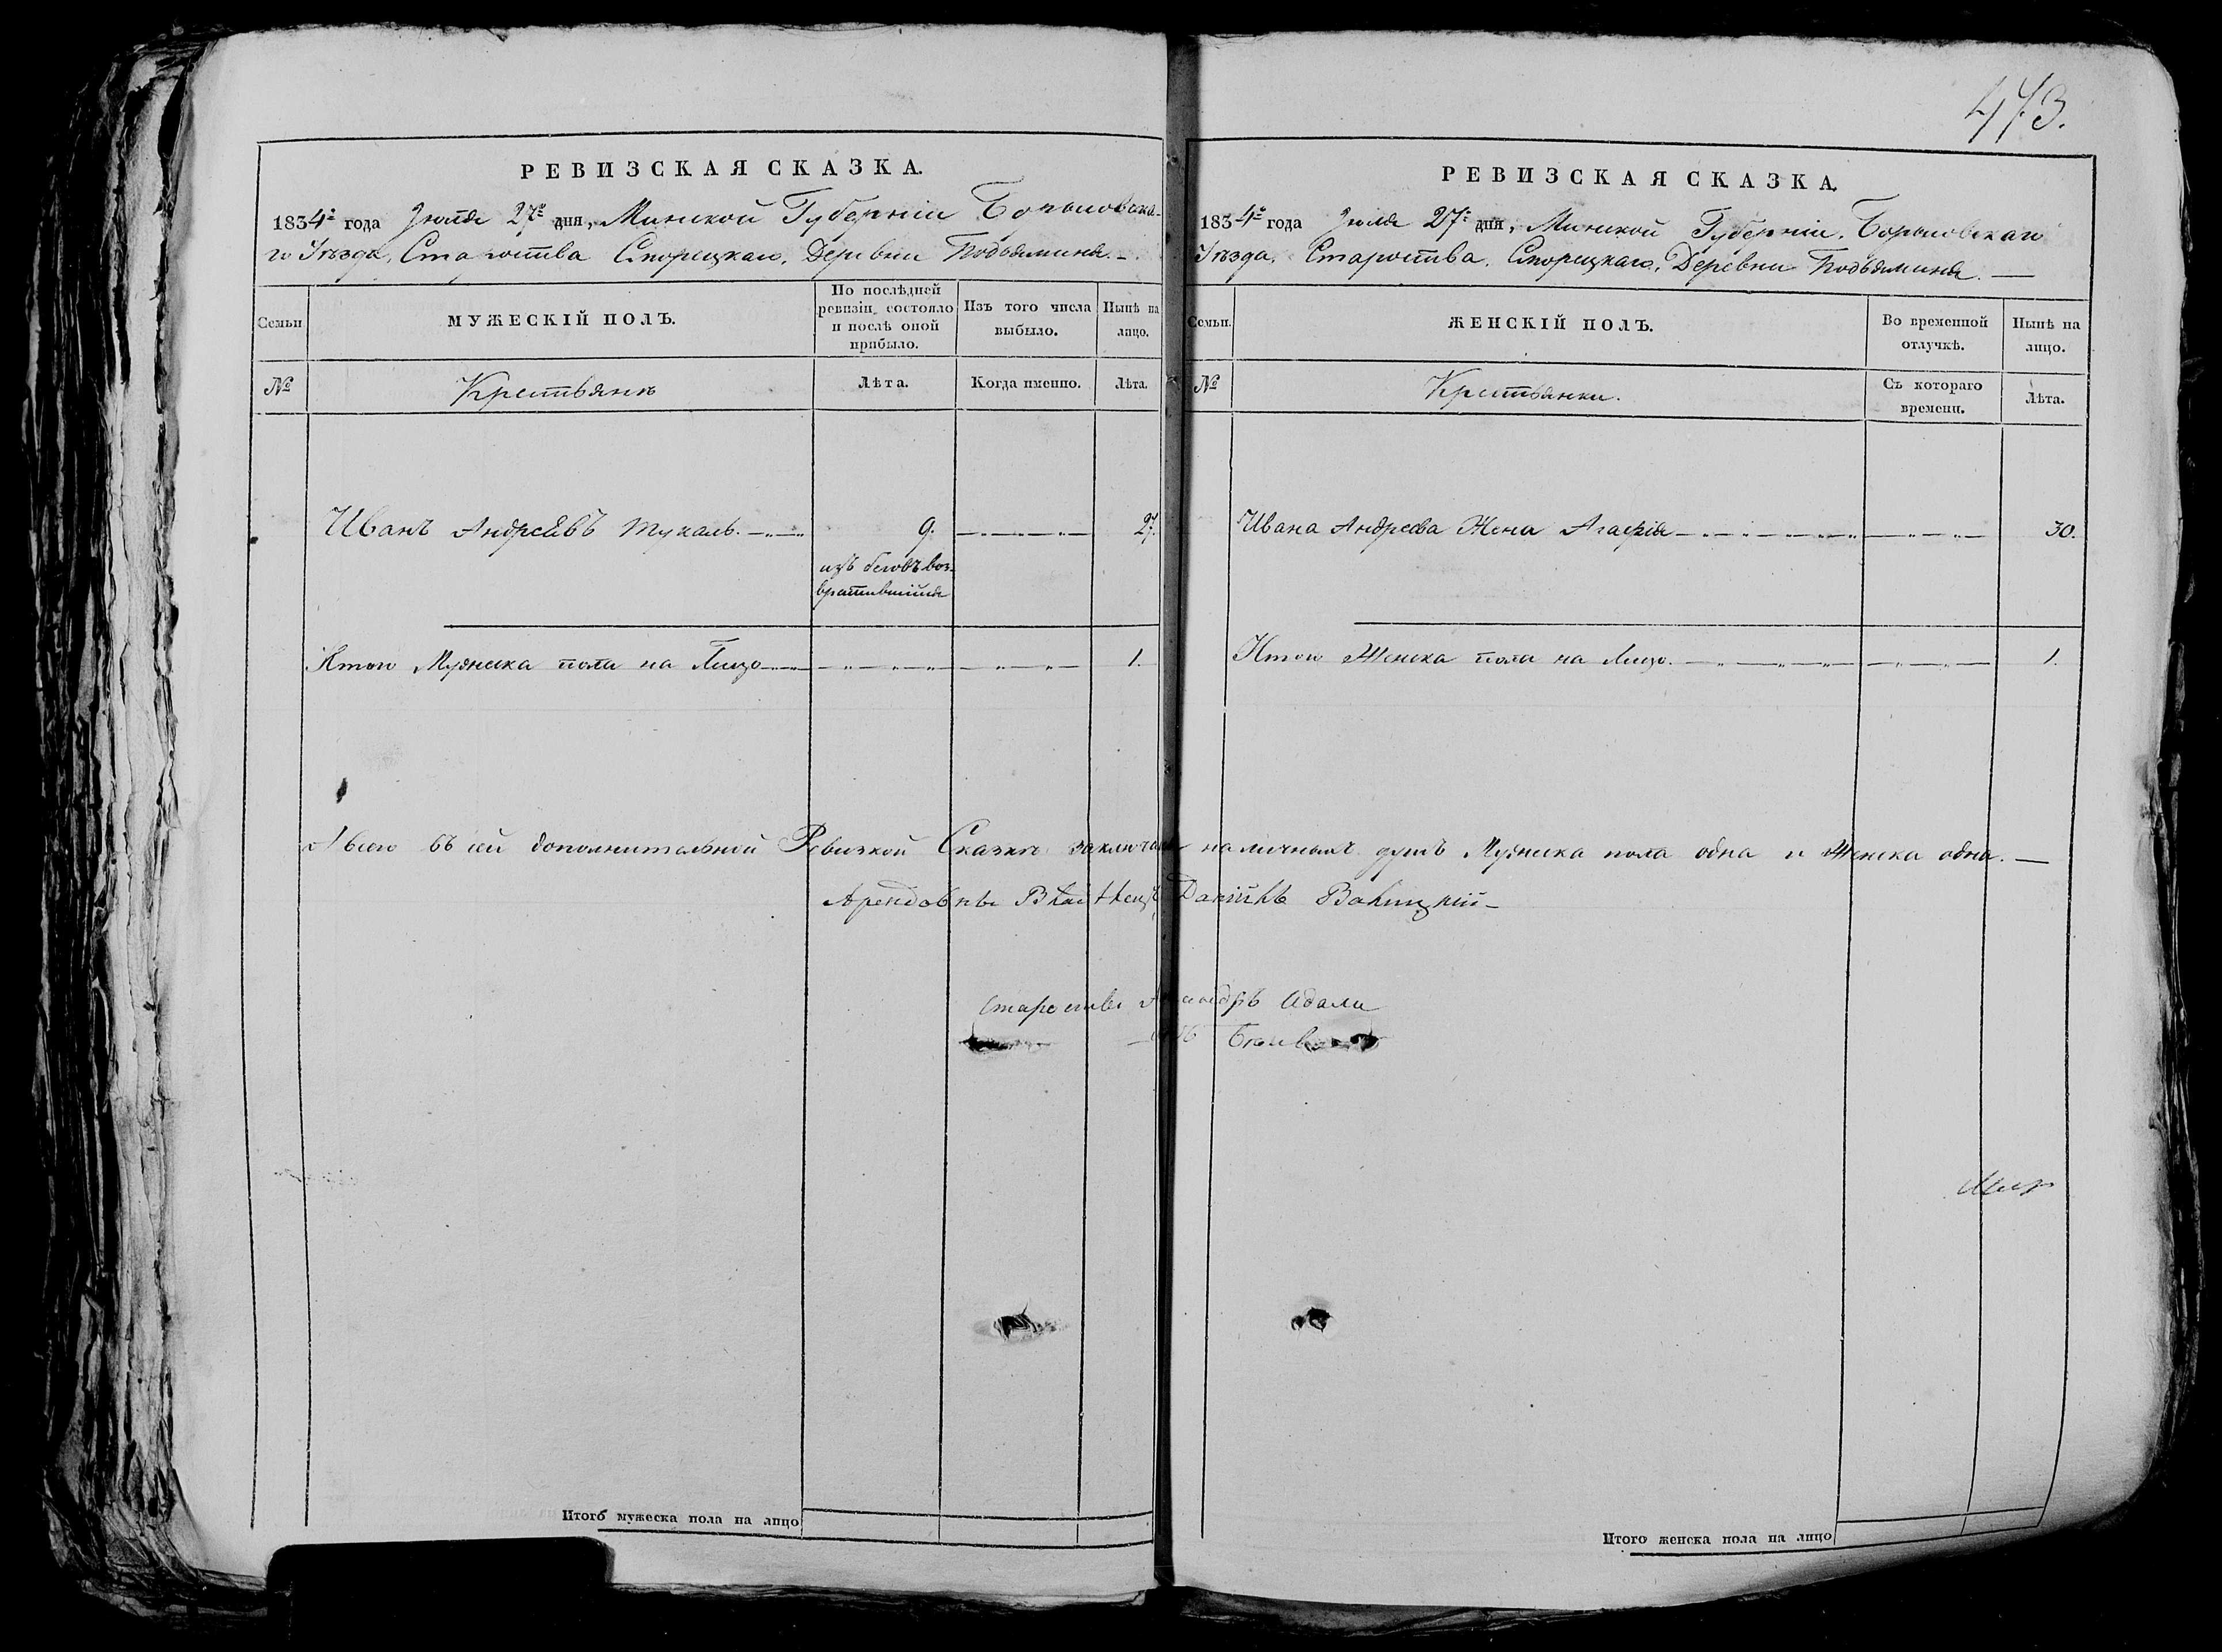 473.
РЕВИЗСКАЯ СКАЗКА.
1834го года Іюля 27го дня, Минской Губерніи Борисовска-
го Уѣзда, Староства Споредкаго, Деревни
Семьи
МУЖЕСКІЙ ПОЛЪ.
По послѣдней ревизіи состояло и послѣ оной прибыло.
Изъ того числа выбыло.
Нынѣ на лицо.
№
Крестьянъ
Лѣта.
Когда именно.
Лѣта.
Иванъ Андреевъ Мукаль.
9.
27.
изъ беговъ воз-
вратившійся
Итого Мужеска пола на Лицо
1.
РЕВИЗСКАЯ СКАЗКА.
1834го года Іюля 27го дня, Минской Губерніи, Борисовскаго
Уѣзда, Староства, Деревни
Семьи.
ЖЕНСКІЙ ПОЛЪ.
Во временной отлучкѣ.
Нынѣ на лицо.
№
Крестьянки.
Съ котораго времени.
Лѣта.
Ивана Андреева Жена Агафія
30.
Итого Женска пола на Лицо.
1.
А всего въ сей дополнительной Ревизкой Сказкѣ наличныхъ душъ Мужеска пола одна и Женска одна.
Итого мужеска пола на лицо
Итого женска пола на лицо